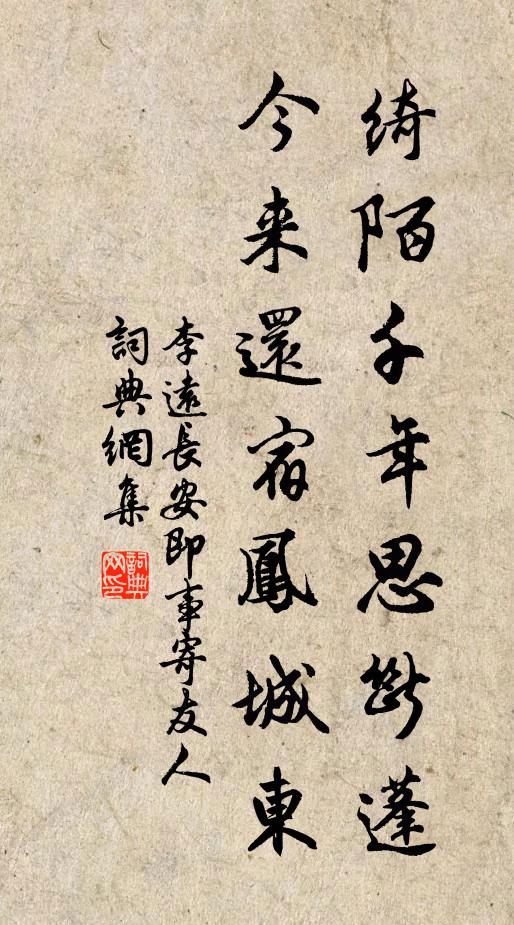 綺陌千年思斷蓬
今來還宿鳳城東
李遠長安即事寄友人
詞典網集
詞典网印